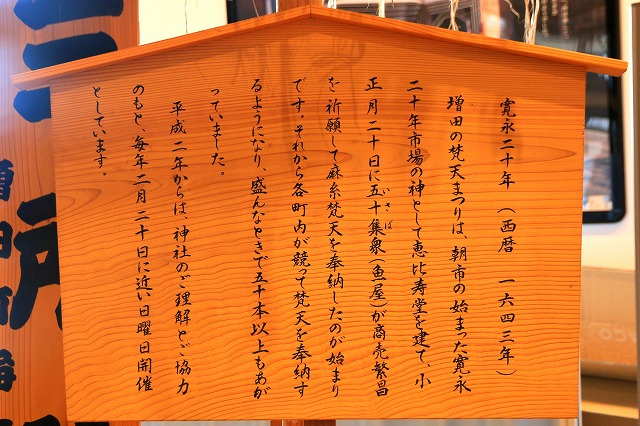 寛永二十年　（西暦　一六四三年）
増田の梵天まつりは、朝市の始まった寛永
二十年市場の神として恵比寿堂を建て、小
正月二十日に五十集衆（魚屋）が商売繁昌
いさば
を祈願して麻糸梵天を奉納したのが始まり
です。それから各町内が競って梵天を奉納す
るようになり、盛んなときで五十本以上もあが
っていました。
平成二年からは、神社のご理解とご協力
のもと、毎年二月二十日に近い日曜日開催
としています。
増田町